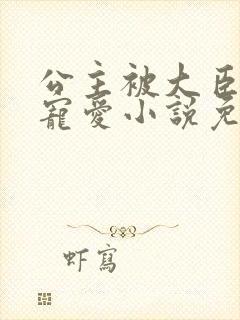 公主被大臣
寵愛小說免
虾寫